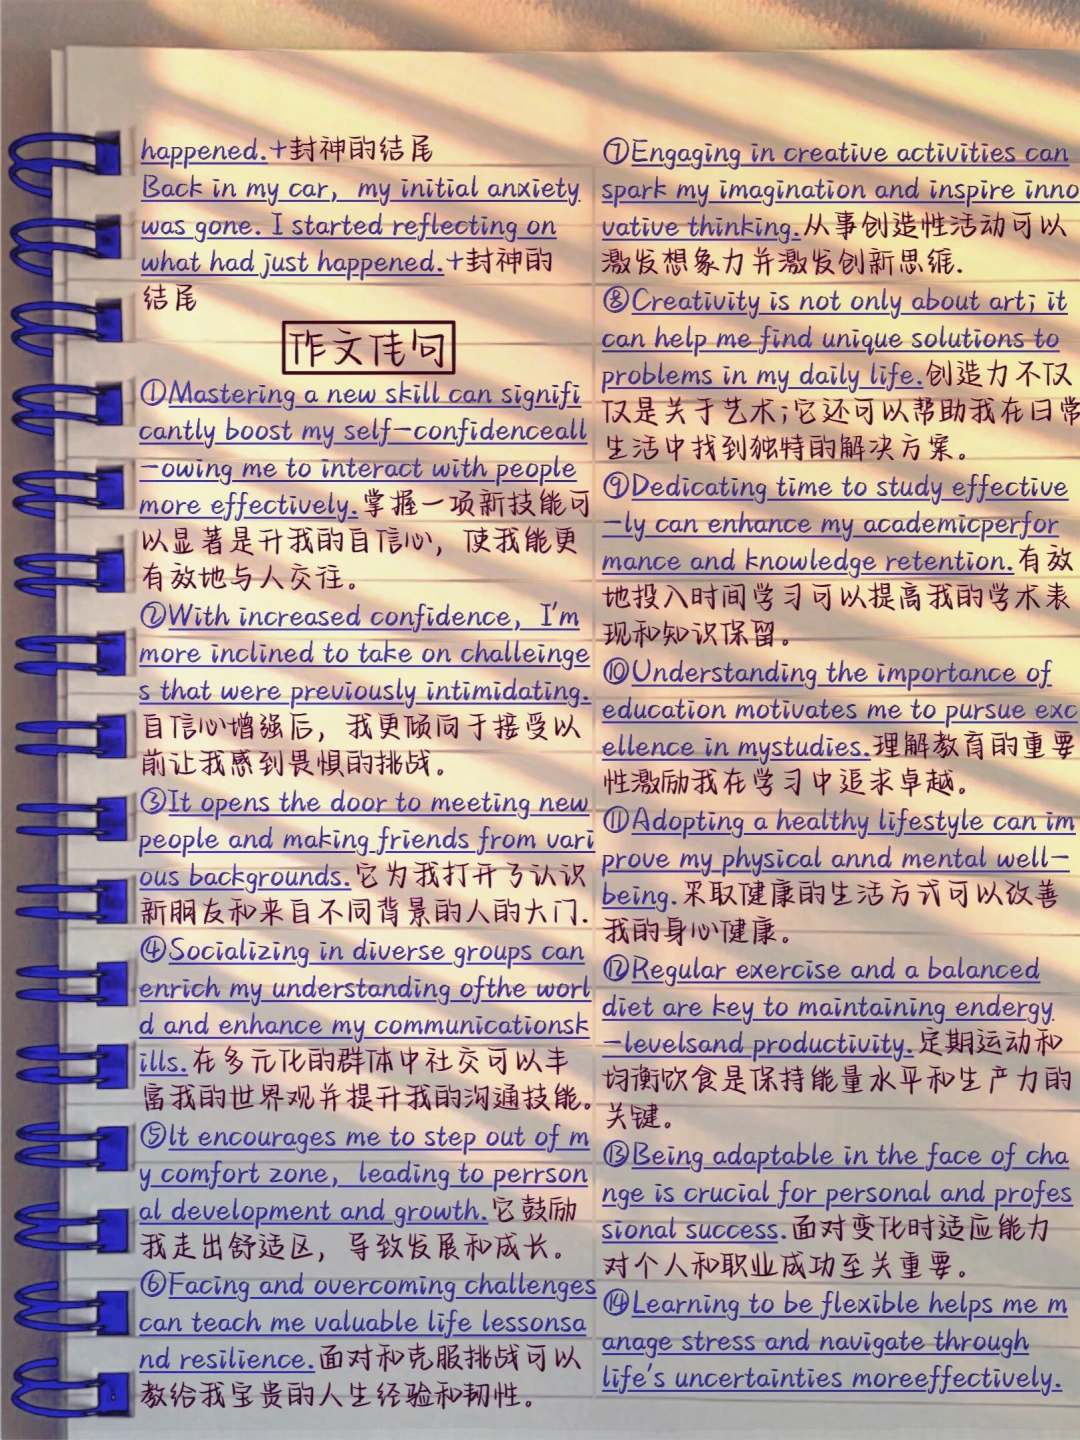 happened.+封神的结尾
Back in my car, my initial anxiety
was gone. I started reflecting on
what had just happened.+封神的
结尾
作文佳句
①Mastering a new skill can signifi
cantly boost my self-confidenceall
-owing me to interact with people
more effectively.掌握一项新技能可
以显著是升我的自信心，使我能更
有效地与人交往。
②With increased confidence, I'm
more inclined to take on challeinge
s that were previously intimidating.
自信心增强后，我更倾向于接受以
前让我感到畏惧的挑战。
③It opens the door to meeting new
people and making friends from vari
ous backgrounds.它为我打开了认识
新朋友和来自不同背景的人的大门.
④Socializing in diverse groups can
enrich my understanding ofthe worl
d and enhance my communicationsk
ills.在多元化的群体中社交可以丰
富我的世界观并提升我的沟通技能。
⑤lt encourages me to step out of m
y comfort zone, leading to perrson
al development and growth.它鼓励
我走出舒适区，导致发展和成长。
⑥Facing and overcoming challenges
can teach me valuable life lessonsa
nd resilience.面对和克服挑战可以
教给我宝贵的人生经验和韧性。
⑦Engaging in creative activities can
spark my imagination and inspire inno
vative thinking.从事创造性活动可以
激发想象力并激发创新思维.
⑧Creativity is not only about art; it
can help me find unique solutions to
problems in my daily life.创造力不仅
仅是关于艺术;它还可以帮助我在日常
生活中找到独特的解决方案。
⑨Dedicating time to study effective
-ly can enhance my academicperfor
mance and knowledge retention.有效
地投入时间学习可以提高我的学术表
现和知识保留。
⑩Understanding the importance of
education motivates me to pursue exc
ellence in mystudies.理解教育的重要
性激励我在学习中追求卓越。
⑪Adopting a healthy lifestyle can im
prove my physical annd mental well-
being.采取健康的生活方式可以改善
我的身心健康。
⑫Regular exercise and a balanced
diet are key to maintaining endergy
-levelsand productivity.定期运动和
均衡饮食是保持能量水平和生产力的
关键。
⑬Being adaptable in the face of cha
nge is crucial for personal and profes
sional success.面对变化时适应能力
对个人和职业成功至关重要。
⑭Learning to be flexible helps me m
anage stress and navigate through
life's uncertainties moreeffectively.